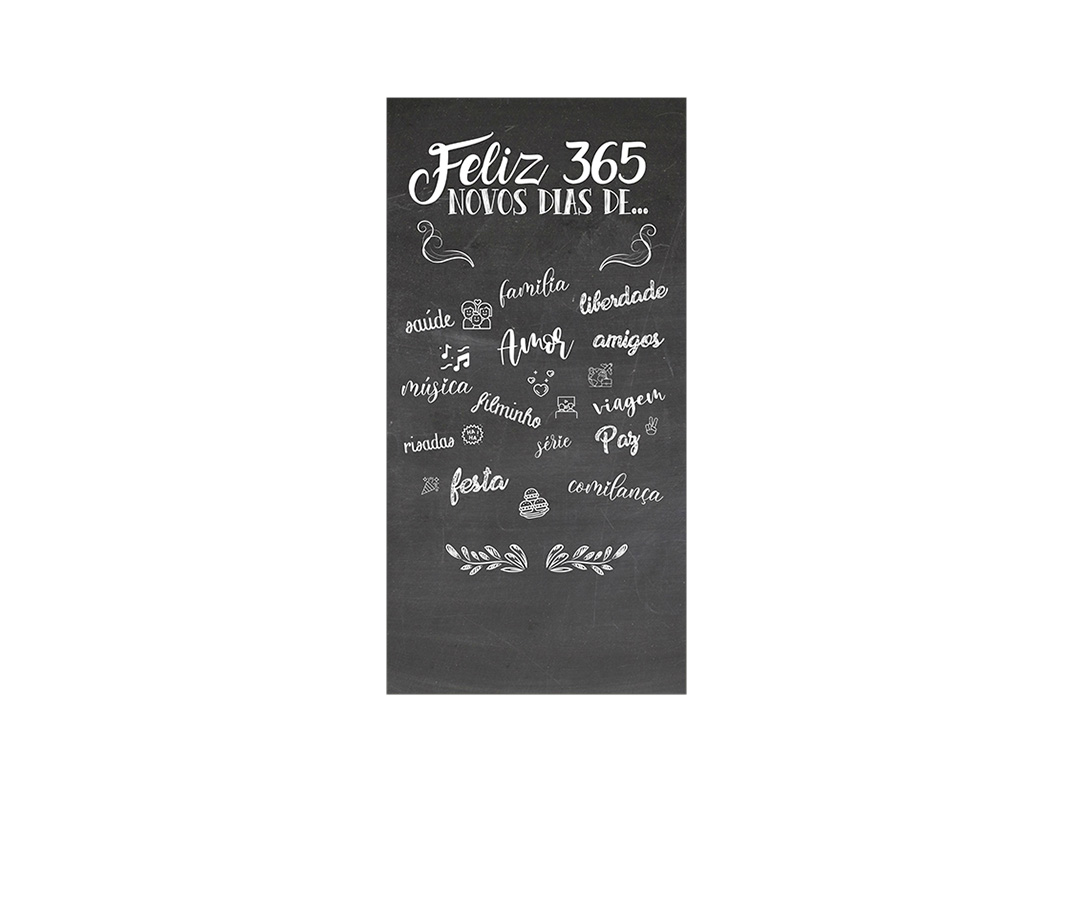 Feliz 365
NOVOS DIAS DE...
família
liberdade
saúde
Amor
amigos
música
filminho
viagem
HA HA
risadas
série
Paz
festa
comilança